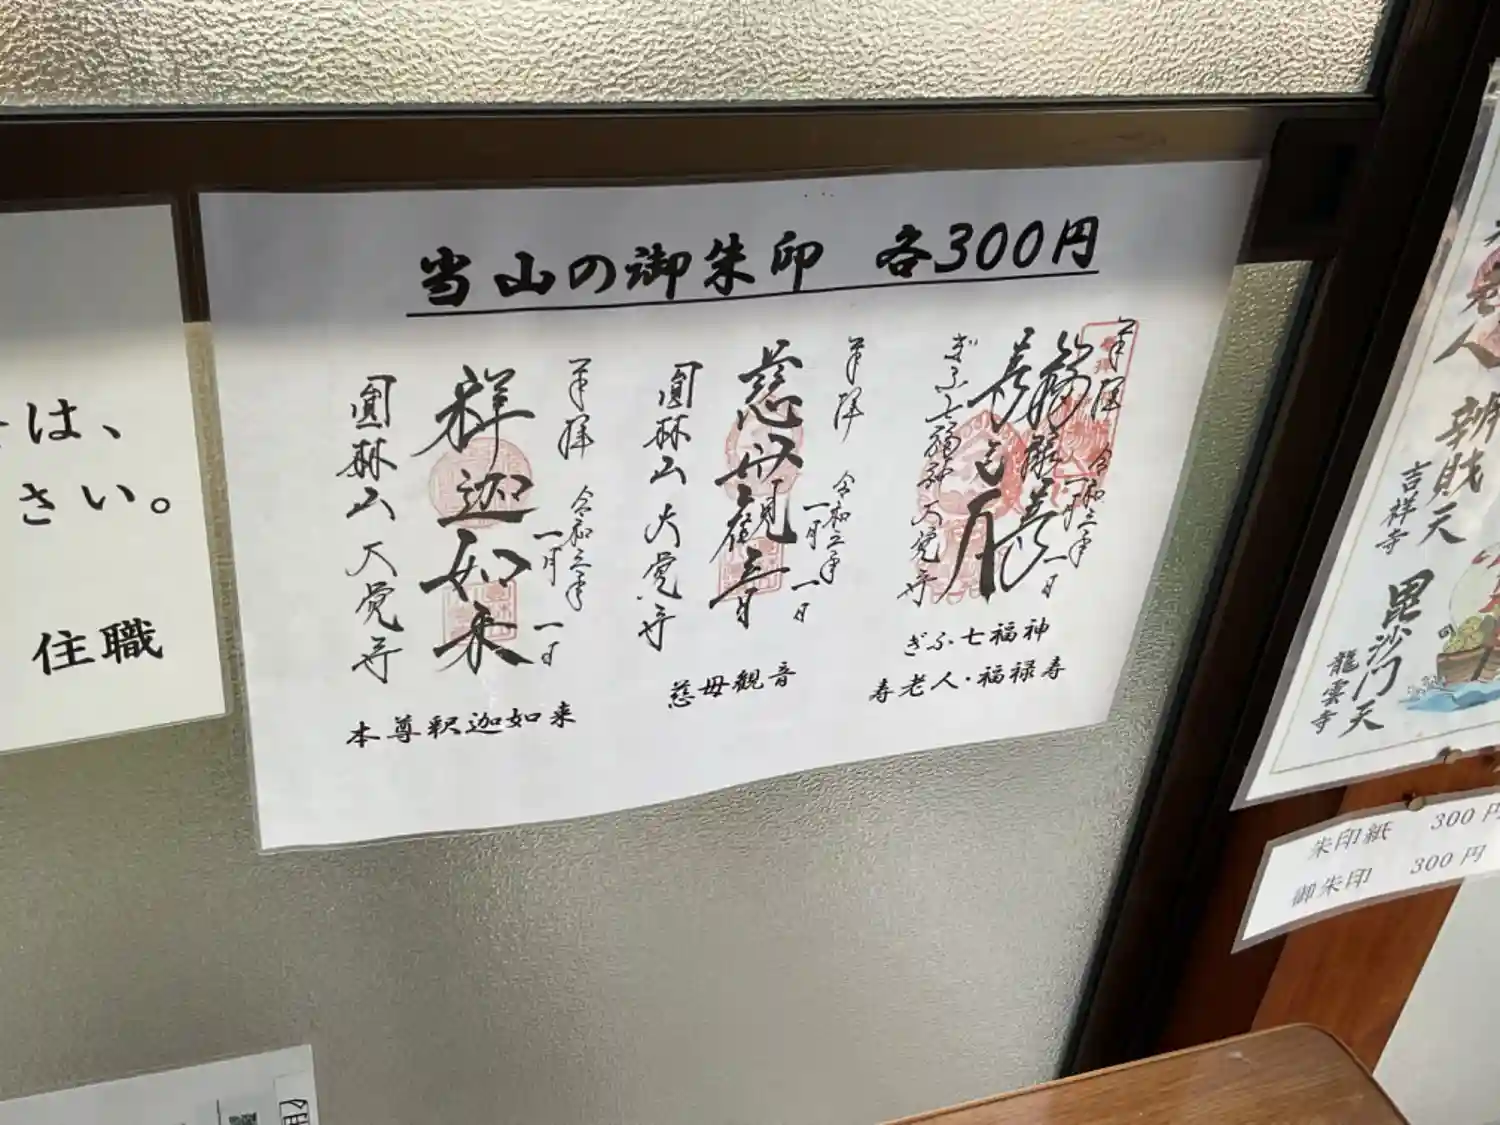 当山の御朱印 各300円
奉拝
令和三年
一月一日
福禄寿
寿老人
ぎふ七福神
大覚寺
ぎふ七福神
寿老人・福禄寿
奉拝
令和三年
一月一日
慈母観音
圓林山 大覚寺
慈母観音
奉拝
令和三年
一月一日
釈迦如来
圓林山 大覚寺
本尊釈迦如来
は、
さい。
住職
老人
辨財天
吉祥寺
毘沙門天
龍雲寺
朱印紙 300円
御朱印 300円